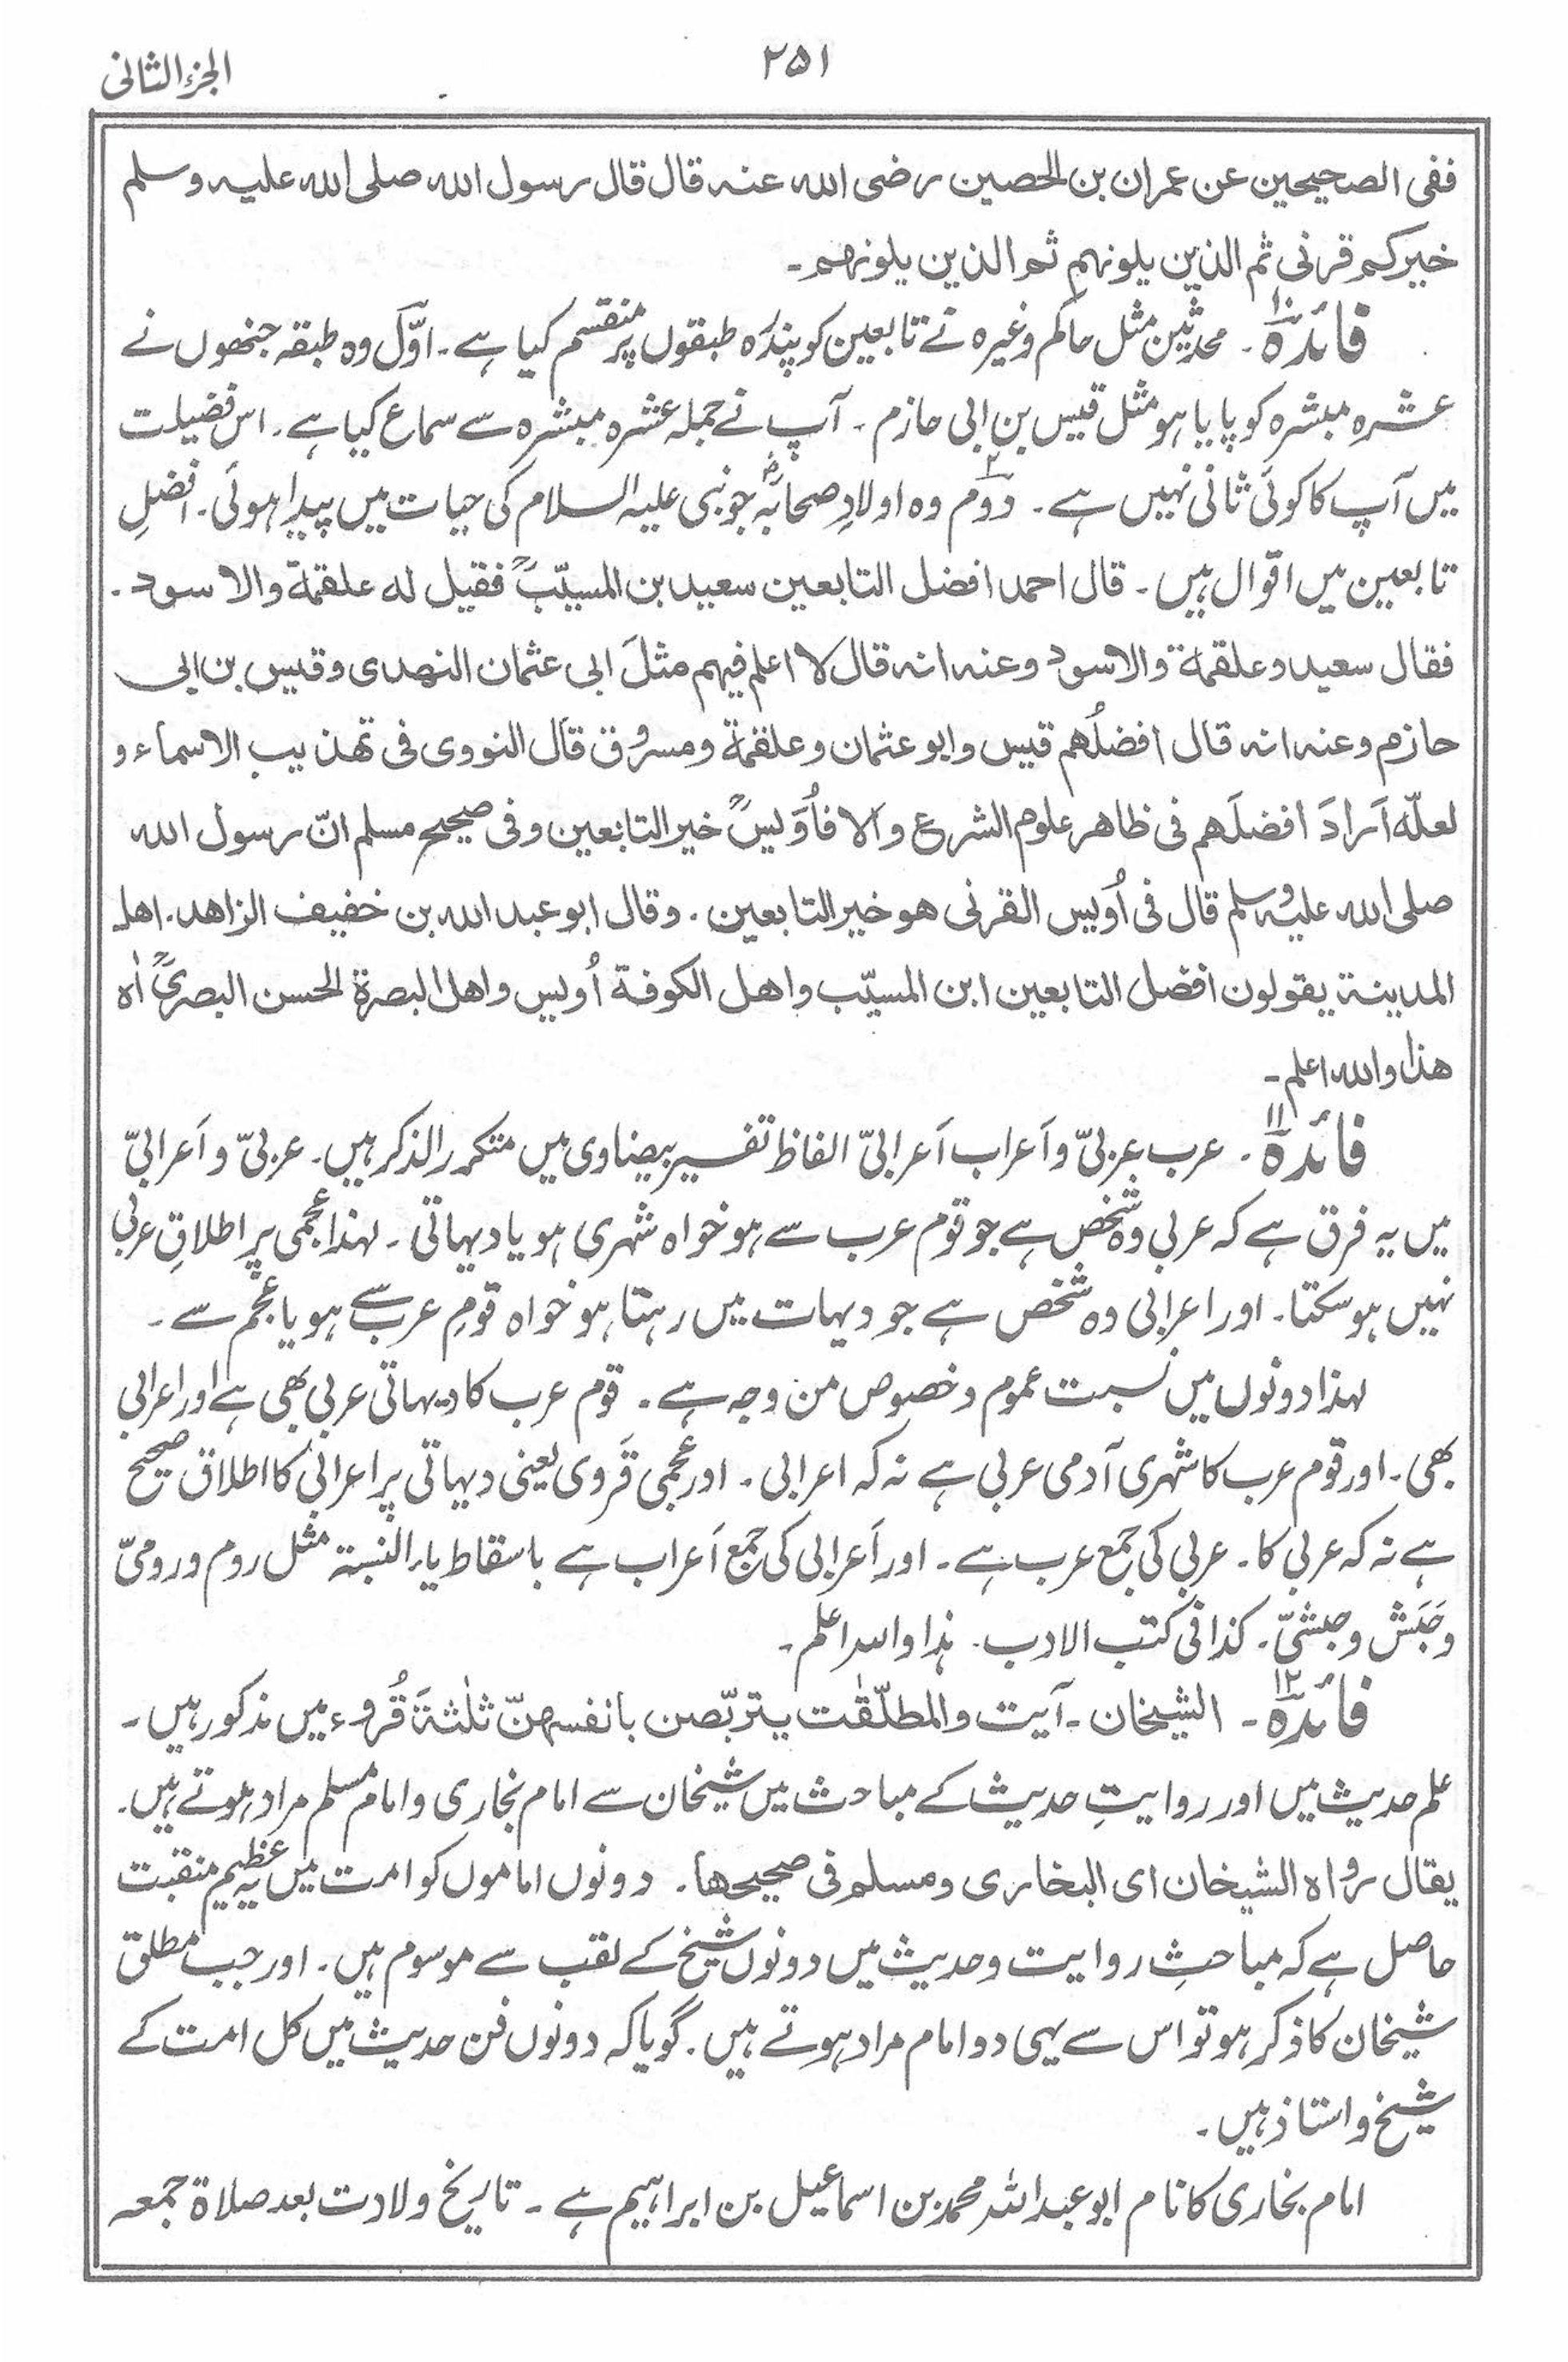 ۲۵۱
الجزء الثانی
ففی الصحیحین عن عمران بن الحصین رضی الله عنه قال قال رسول الله صلی الله علیه وسلم
خیرکم قرنی ثم الذین یلونهم ثم الذین یلونهم۔
فائدہ ۱۰۔ محدثین مثل حاکم وغیرہ نے تابعین کو پندرہ طبقوں پر منقسم کیا ہے۔ اوّل وہ طبقہ جنھوں نے
عشرہ مبشرہ کو پایا ہو مثل قیس بن ابی حازم۔ آپ نے جملہ عشرہ مبشرہ سے سماع کیا ہے۔ اس فضیلت
میں آپ کا کوئی ثانی نہیں ہے۔ دوم۲ وہ اولادِ صحابہؓ جو نبی علیہ السلام کی حیات میں پیدا ہوئی۔ افضلِ
تابعین میں اقوال ہیں۔ قال احمد افضل التابعین سعید بن المسیّبؒ فقیل له علقمة والاسود۔
فقال سعید وعلقمة والاسود وعنه انه قال لا اعلم فیهم مثلَ ابی عثمان النهدی وقیس بن ابی
حازم وعنه انه قال افضلُهم قیس وابو عثمان وعلقمة ومسروق قال النووی فی تهذیب الاسماء و
لعلّه اَرادَ افضلَهم فی ظاهر علوم الشرع والا فاُوَیسؒ خیر التابعین وفی صحیح مسلم انّ رسول الله
صلی الله علیه وسلم قال فی اُویس القرنی هو خیر التابعین۔ وقال ابو عبد الله بن خفیف الزاهد۔ اهل
المدینة یقولون افضل التابعین ابن المسیّب واهل الکوفة اُویس واهل البصرة الحسن البصریؒ اٰہ
هذا والله اعلم۔
فائدہ ۱۱۔ عرب عربیّ واَعراب اَعرابیّ الفاظ تفسیر بیضاوی میں متکرر الذکر ہیں۔ عربیّ و اَعرابیّ
میں یہ فرق ہے کہ عربی وہ شخص ہے جو قوم عرب سے ہو خواہ شہری ہو یا دیہاتی۔ لہذا عجمی پر اطلاقِ عربی
نہیں ہو سکتا۔ اور اعرابی وہ شخص ہے جو دیہات میں رہتا ہو خواہ قومِ عرب سے ہو یا عجم سے۔
لہذا دونوں میں نسبت عموم وخصوص من وجہ ہے۔ قوم عرب کا دیہاتی عربی بھی ہے اور اعرابی
بھی۔ اور قوم عرب کا شہری آدمی عربی ہے نہ کہ اعرابی۔ اور عجمی قَروی یعنی دیہاتی پر اعرابی کا اطلاق صحیح
ہے نہ کہ عربی کا۔ عربی کی جمع عرب ہے۔ اور اَعرابی کی جمع اَعراب ہے باسقاط یاء النسبۃ مثل روم ورومیّ
وحَبَش وحبشیّ۔ کذا فی کتب الادب۔ ہذا واللہ اعلم۔
فائدہ ۱۲۔ الشیخان۔ آیت والمطلّقٰت یتربّصن بانفسهنّ ثلٰثةَ قُروء میں مذکور ہیں۔
علم حدیث میں اور روایتِ حدیث کے مباحث میں شیخان سے امام بخاری و امام مسلم مراد ہوتے ہیں۔
یقال رواه الشیخان ای البخاری ومسلم فی صحیحها۔ دونوں اماموں کو امت میں یہ عظیم منقبت
حاصل ہے کہ مباحثِ روایت وحدیث میں دونوں شیخ کے لقب سے موسوم ہیں۔ اور جب مطلق
شیخان کا ذکر ہو تو اس سے یہی دو امام مراد ہوتے ہیں۔ گویا کہ دونوں فن حدیث میں کل امت کے
شیخ واستاذ ہیں۔
امام بخاری کا نام ابو عبد اللہ محمد بن اسماعیل بن ابراہیم ہے۔ تاریخ ولادت بعد صلاۃ جمعہ